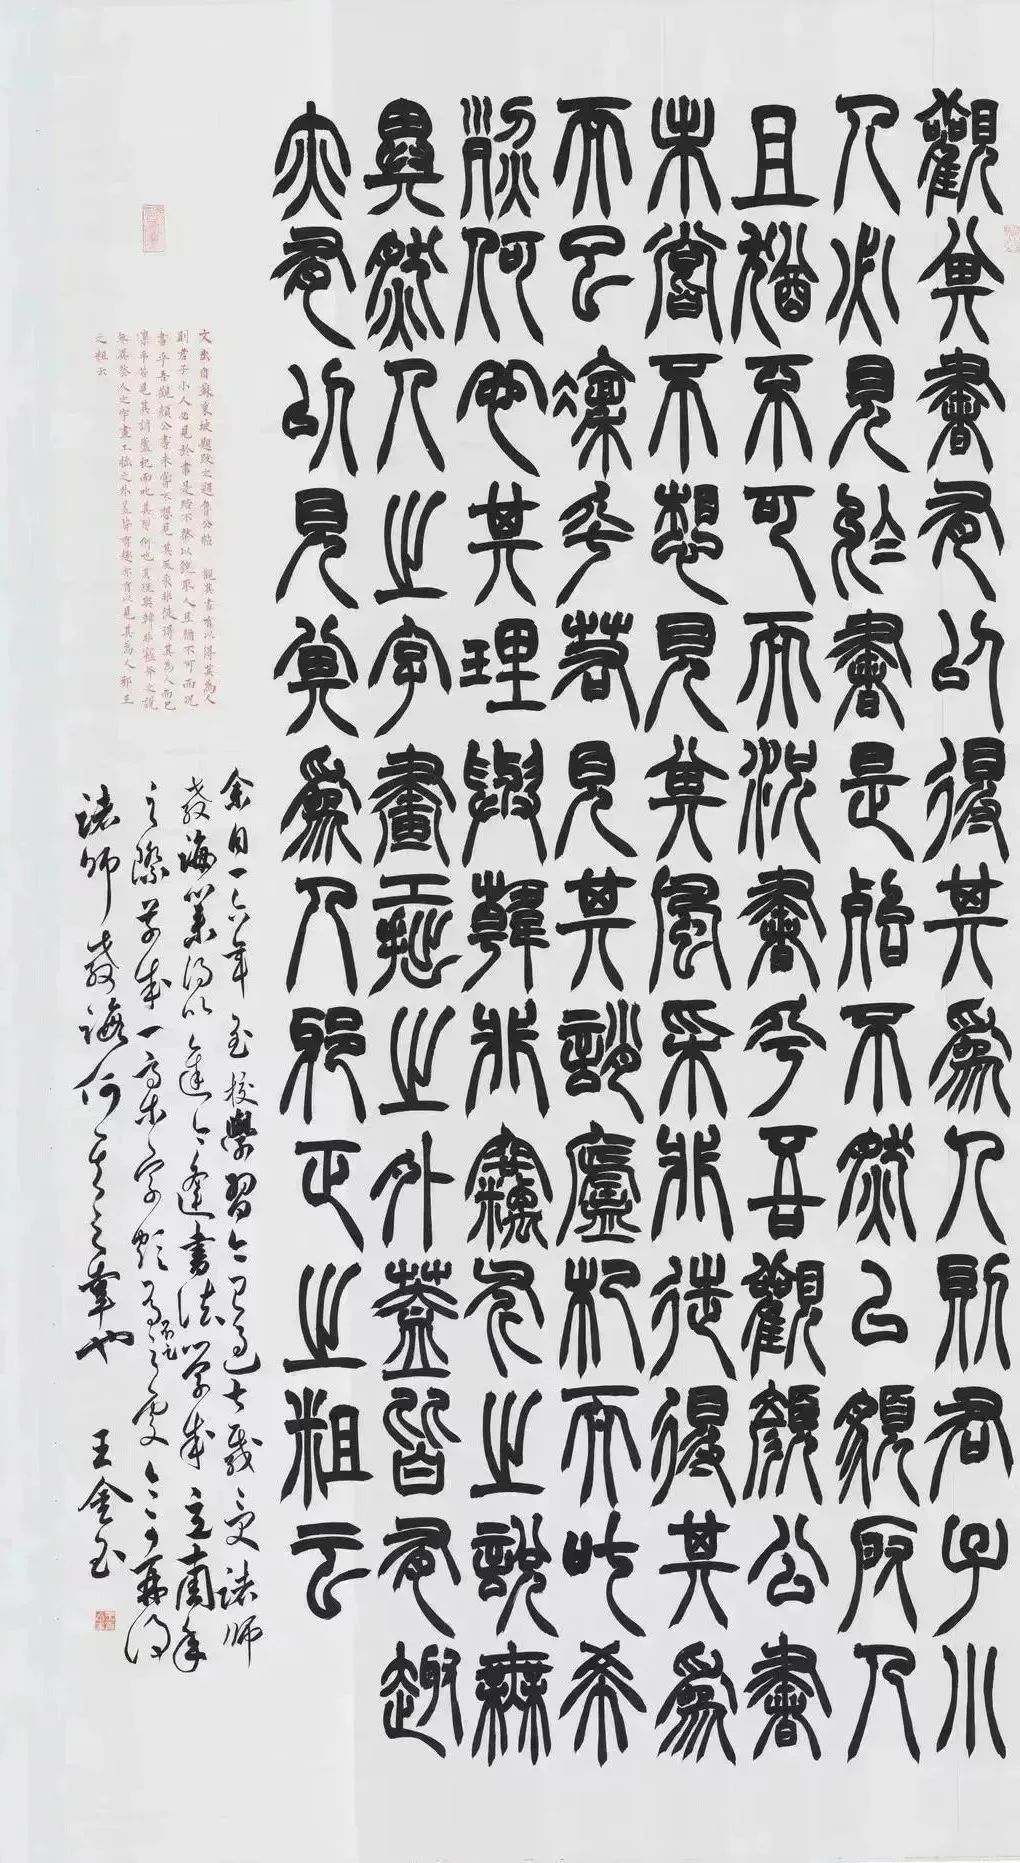 觀其書有以得其爲人則君子小
人必見於書是殆不然以貌取人
且猶不可而況書乎吾觀顏公書
未嘗不想見其風采非徒得其爲
而已凜乎若見其誚盧杞而叱希
烈何也其理與韓非竊斧之說無
異然人之字畫工拙之外蓋皆有趣
亦有以見其爲人邪正之粗云
文出自蘇東坡題跋之題魯公帖 觀其書有以得其為人
則君子小人必見於書是殆不然以貌取人且猶不可而況
書乎吾觀顏公書未嘗不想見其風采非徒得其為人而已
凜乎若見其誚盧杞而叱其希烈何也其理與韓非竊斧之說
無異然人之字畫工拙之外蓋皆有趣亦有以見其為人邪正
之粗云
余自一六年至校學習今已過七載受諸師
教誨業得以達今逢書法學成立周年
之際草成一
諸師教誨何其之幸也
王金玉